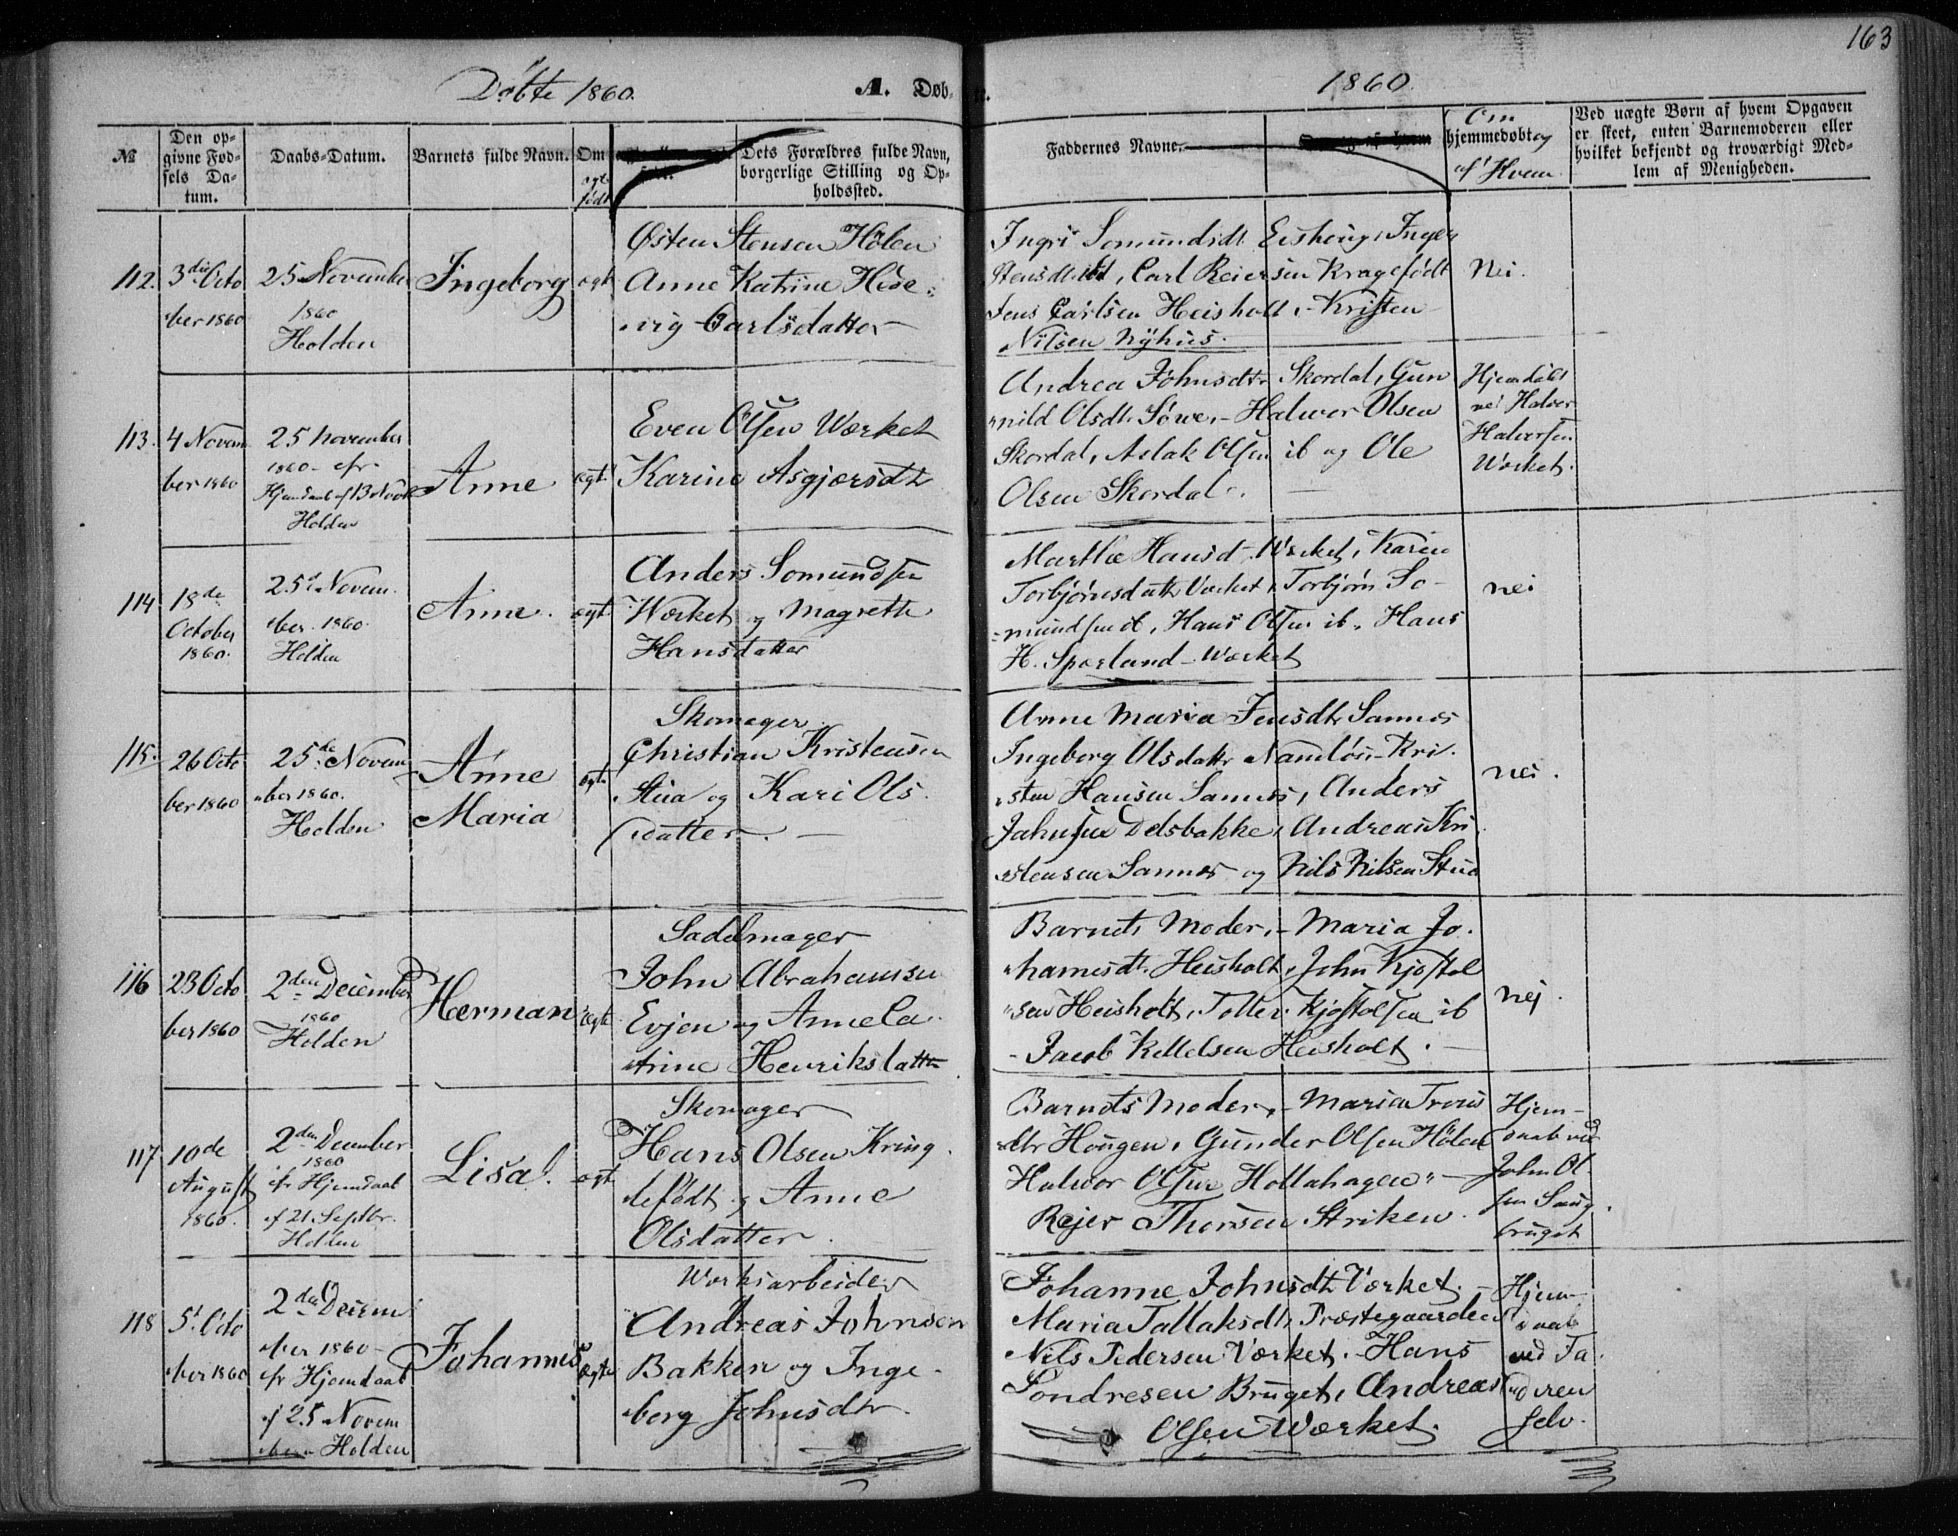 163
Døbte 1860.
A. Døb-
1860.
№
Den op-
givne Fød-
sels Da-
tum.
Daabs-Datum.
Barnets fulde Navn.
Om
ægte
født
Dets Forældres fulde Navn,
borgerlige Stilling og Op-
holdssted.
Faddernes Navne.
Om
hjemmedøbt og
af Hvem
Ved uægte Børn af hvem Opgaven
er skeet, enten Barnemoderen eller
hvilket bekjendt og troværdigt Med-
lem af Menigheden.
112.
3die Octo
ber 1860
25 November
1860
Holden
Ingeborg
ægt
Østen Stensen Hølen
Anne Katrine Hed-
vig Carlsdatter
Ingri Somundsdt. Inger
Stensdt. ibd, Carl Reiersen Kragefødt
Jens Carlsen Heisholt, Kristen
Nilsen Nyhus.
Nei.
113.
4 Novem
ber 1860
25 November
1860 - efr
Hjemdaab af Novb
Holden
Anne
ægt
Even Olsen Wærket
Karine Asgjærsdt
Andrea Johnsdt. Skordal, Gun
nild Olsdt. Søwe, - Halwer Olsen
Skordal, Aslak Olsen ib og Ole
Olsen Skordal.
Hjemdøbt
Halvor
Halvorsen
Wærket.
114
18de
October
1860.
25de Novem
ber 1860.
Holden
Anne.
ægt
Anders Somundsen
Wærket og Magrethe
Hansdatter
Marthe Hansdt. Wærket, Karen
Torbjørnsdatter Værket, Torbjørn So-
mundsen ib, Hans Olsen ib. Hans
H. Sporland - Wærket
nei
115.
26 Octo
ber 1860
25de Novem
ber 1860.
Holden
Anne
Maria
ægte
Skomager
Christian Kristensen
Stua og Kari Ols
datter.
Anne Maria Jensdt. Sannes
Ingeborg Olsdatter Namløs - Kri
sten Hansen Sannes, Anders
Jahnsen Delsbakke, Andreas Kri
stensen Sannes og Nils Nilsen Stua
nei.
116
23 Octo
ber 1860
2den December
1860
Holden
Herman
ægte
Sadelmager
John Abrahamsen
Evjen og Anne Ca
trine Henriksdatter
Barnets Moder, - Maria Jo
hannesdt. Heisholt, John Kjøstol
sen Heisholt, Tollev Kjøstolsen ib
- Jacob Kittelsen Heisholt.
nej.
117
10de
August
1860.
2den December
1860
efr Hjemdaab
af 21. Septbr.
Holden
Lisa.
ægt
Skomager
Hans Olsen Kring
lefødt og Anne
Olsdatter.
Barnets Moder, - Maria
dtr Hougen, Gunder Olsen Hølen
Halvor Olsen Hollahagen -
Rejer Thorsen Striken.
Hjem-
daab ved
John Ol
sen Saug
bruget
118
5t Octo
ber 1860
2den Decem
ber 1860 -
efr Hjemdaab
af 25 Novem
ber Holden
Johannes
ægte
Worksarbeider
Andreas Johnsen
Bakken og Inge
borg Johnsdtr.
Johanne Johnsdt. Værket. -
Maria Tallaksdt. Præstegaarden
Nils Pedersen Værket. - Hans
Sondresen Bruget, Andreas
Olsen Wærket.
Hjem-
daab
ved Fa
deren
selv.